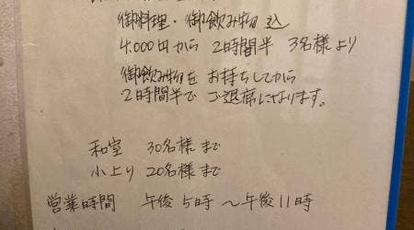 御料理・御飲み物 込
4,000円から 2時間半 3名様より
御飲み物を お持ちしてから
2時間半で ご退席になります。
和室 30名様まで
小上り 20名様まで
営業時間 午後5時〜午後11時